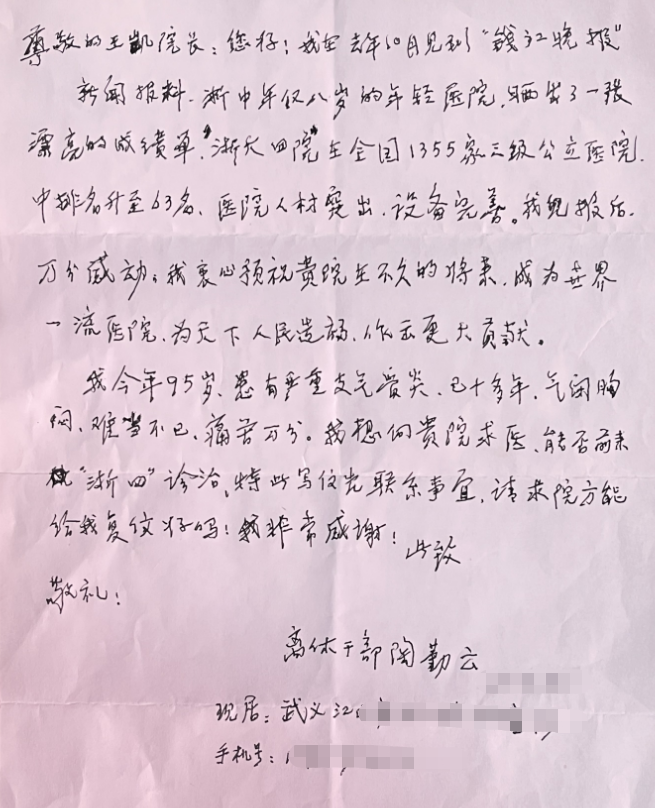 尊敬的王凯院长：您好！我在去年10月见到“钱江晚报”
新闻报料．浙中年仅八岁的年轻医院，晒出了一张
漂亮的成绩单，“浙大四院”在全国1355家三级公立医院．
中排名升至63名、医院人材突出、设备完善。我见报后．
万分感动；我衷心预祝贵院在不久的将来，成为世界
一流医院，为天下人民造福，作出更大贡献。
我今年95岁、患有严重支气管炎、已十多年，气闭胸
闷、难当不已、痛苦万分。我想向贵院求医、能否前来
“浙四”诊治，特此写信先联系事宜，请求院方能
给我复信好吗！我非常感谢！
此致
敬礼！
离休干部陶勤云
现居：武义江
手机号：1